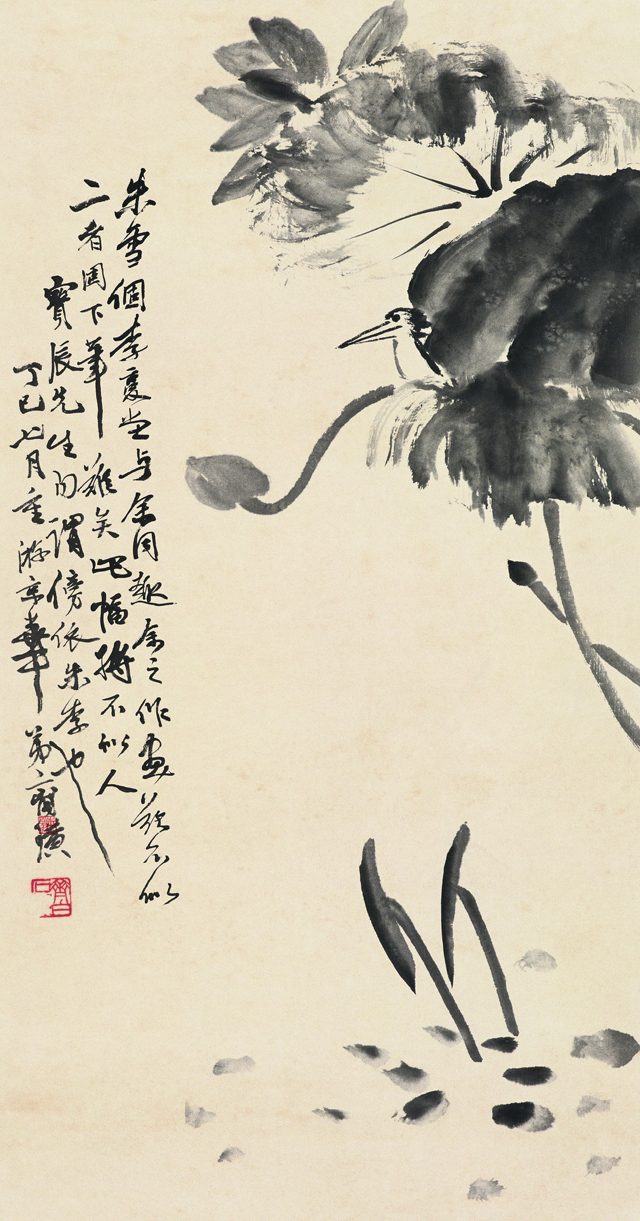 朱雪個李复堂与余同趣余之作畫欲不似
二者固下筆難矣此幅將不似人
寶辰先生勿謂傍依朱李也
丁巳七月重游京華弟齊璜
齊白石